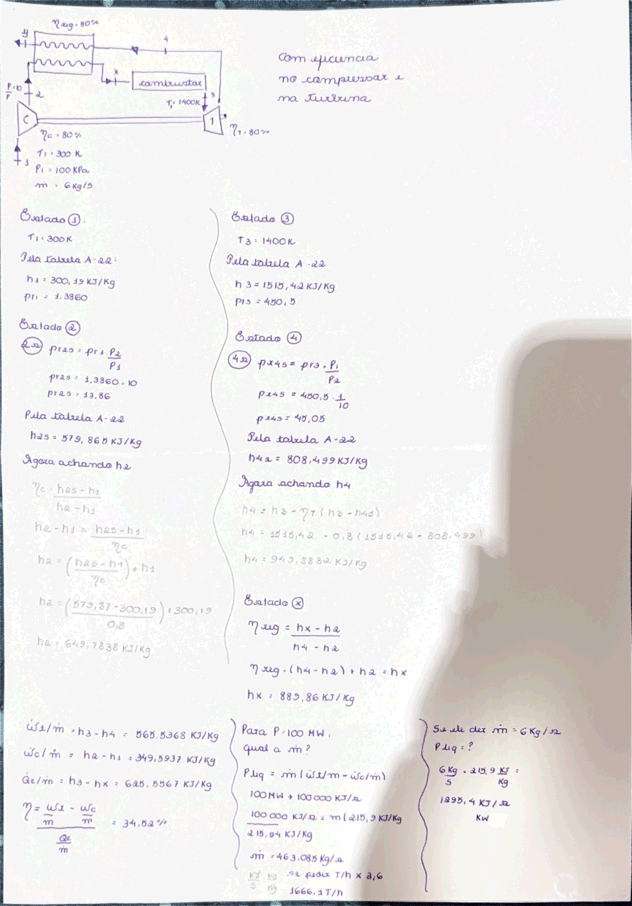 ηreg = 80%
y
4
x
combustor
P=10
P
2
3
T3 = 1400K
C
T
ηc = 80%
ηT = 80%
1
T1 = 300 K
P1 = 100 KPa
ṁ = 6 kg/s
Com eficiência
no compressor e
na turbina
Estado ①:
T1 = 300K
Pela tabela A-22:
h1 = 300,19 KJ/Kg
pr1 = 1,3860
Estado ②
2s pr2s = pr1 . P2/P1
pr2s = 1,3860 . 10
pr2s = 13,86
Pela tabela A-22
h2s = 579,865 KJ/Kg
Agora achando h2
ηc = h2s - h1 / h2 - h1
h2 - h1 = h2s - h1 / ηc
h2 = (h2s - h1 / ηc) + h1
h2 = (579,87 - 300,19 / 0,8) + 300,19
h2 = 649,7838 KJ/Kg
Estado ③
T3 = 1400K
Pela tabela A-22
h3 = 1515,42 KJ/Kg
pr3 = 450,5
Estado ④
4s pr4s = pr3 . P1/P2
pr4s = 450,5 . 1/10
pr4s = 45,05
Pela tabela A-22
h4s = 808,499 KJ/Kg
Agora achando h4
h4 = h3 - ηT (h3 - h4s)
h4 = 1515,42 - 0,8 (1515,42 - 808,499)
h4 = 949,8832 KJ/Kg
Estado ⓧ
ηreg = hx - h2 / h4 - h2
ηreg . (h4 - h2) + h2 = hx
hx = 889,86 KJ/Kg
Ẇt/ṁ = h3 - h4 = 565,5368 KJ/Kg
Ẇc/ṁ = h2 - h1 = 349,5937 KJ/Kg
Q̇e/ṁ = h3 - hx = 625,5567 KJ/Kg
η = Ẇt/ṁ - Ẇc/ṁ / Q̇e/ṁ = 34,52%
Para P = 100 MW.
qual a ṁ?
Pliq = ṁ (Ẇt/ṁ - Ẇc/ṁ)
100MW → 100000 KJ/s
100 000 KJ/s = ṁ (215,9 KJ/Kg)
215,94 KJ/Kg
ṁ = 463,085 Kg/s
se pedir T/h x 3,6
1666,1 T/h
Se ele der ṁ = 6 Kg/s
Pliq = ?
6 Kg/s . 215,9 KJ/Kg =
1295,4 KJ/s
KW